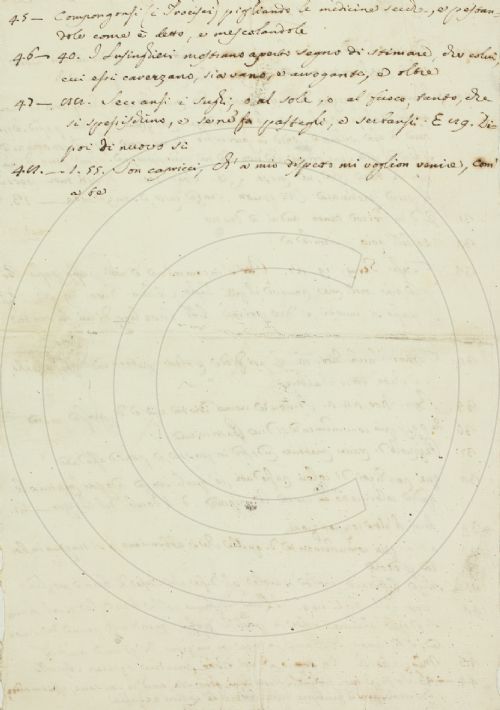 45 — Compongonsi (i Trocisci) pigliando le medicine secche, e pestan-
dole come è detto, e mescolandole
46 — 40. I Lusinghieri mostrano aperto segno di stimare, che colui,
cui essi carezzano, sia vano, e arrogante, e oltre
47 — Seccansi i sughi, o al sole, o al fuoco, tanto, che
si spessischino, e se ne fa pastegli, e serbansi. E 119. Di
poi di nuovo si
1. 55. Son capricci, Ch' a mio dispetto mi voglion venire, com'
a te